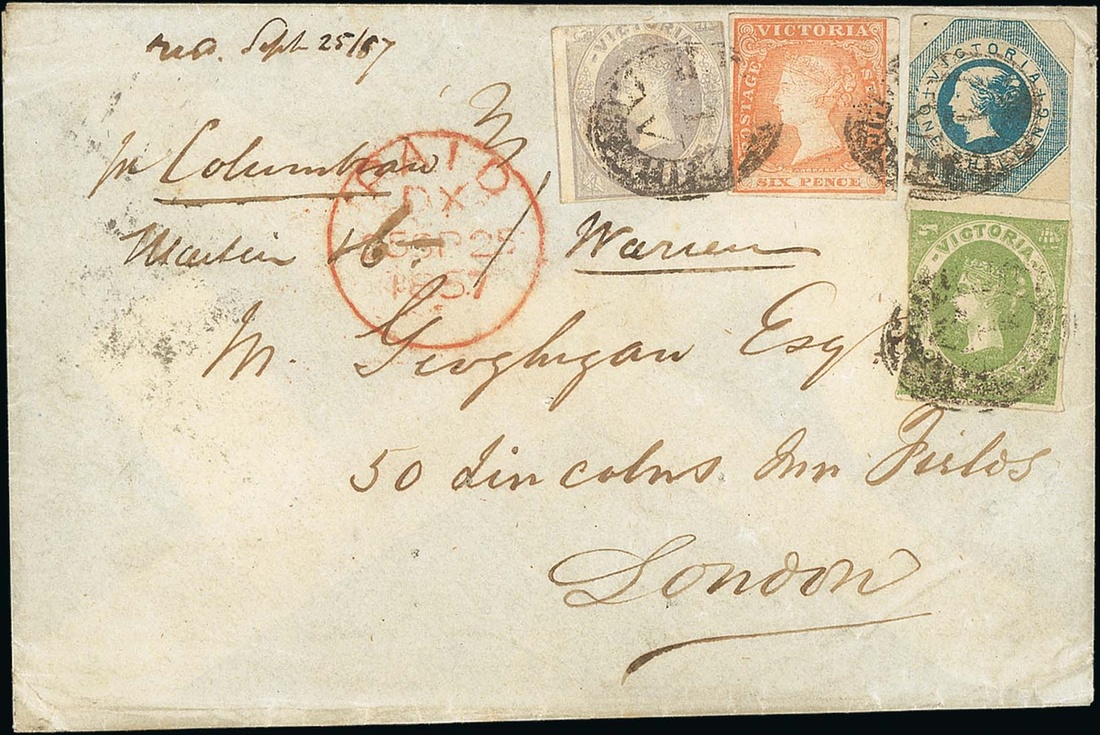 recd. Sept 25/57
VICTORIA
VICTORIA
POSTAGE
SIX PENCE
VICTORIA
ONE SHILLING
per Columbian
PAID
DX
25 SP 25
1857
Martin & Warren
VICTORIA
M. Geoghegan Esqr
50 Lincolns Inn Fields
London